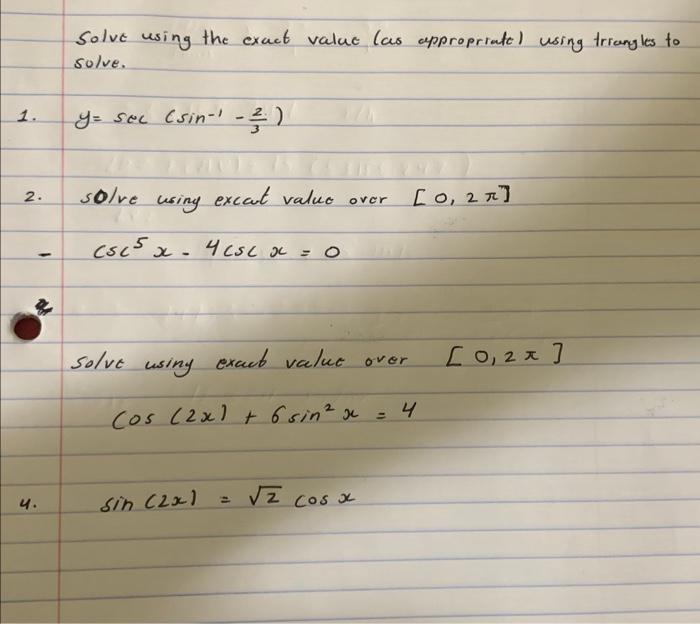 Solve using the exact value (as appropriate) using triangles to
solve.
1. y= sec (sin⁻¹ - 2/3)
2. solve using excat value over [0, 2π]
- csc⁵ x - 4 csc x = 0
solve using exact value over [0, 2π]
cos (2x) + 6 sin² x = 4
4. sin (2x) = √2 cos x